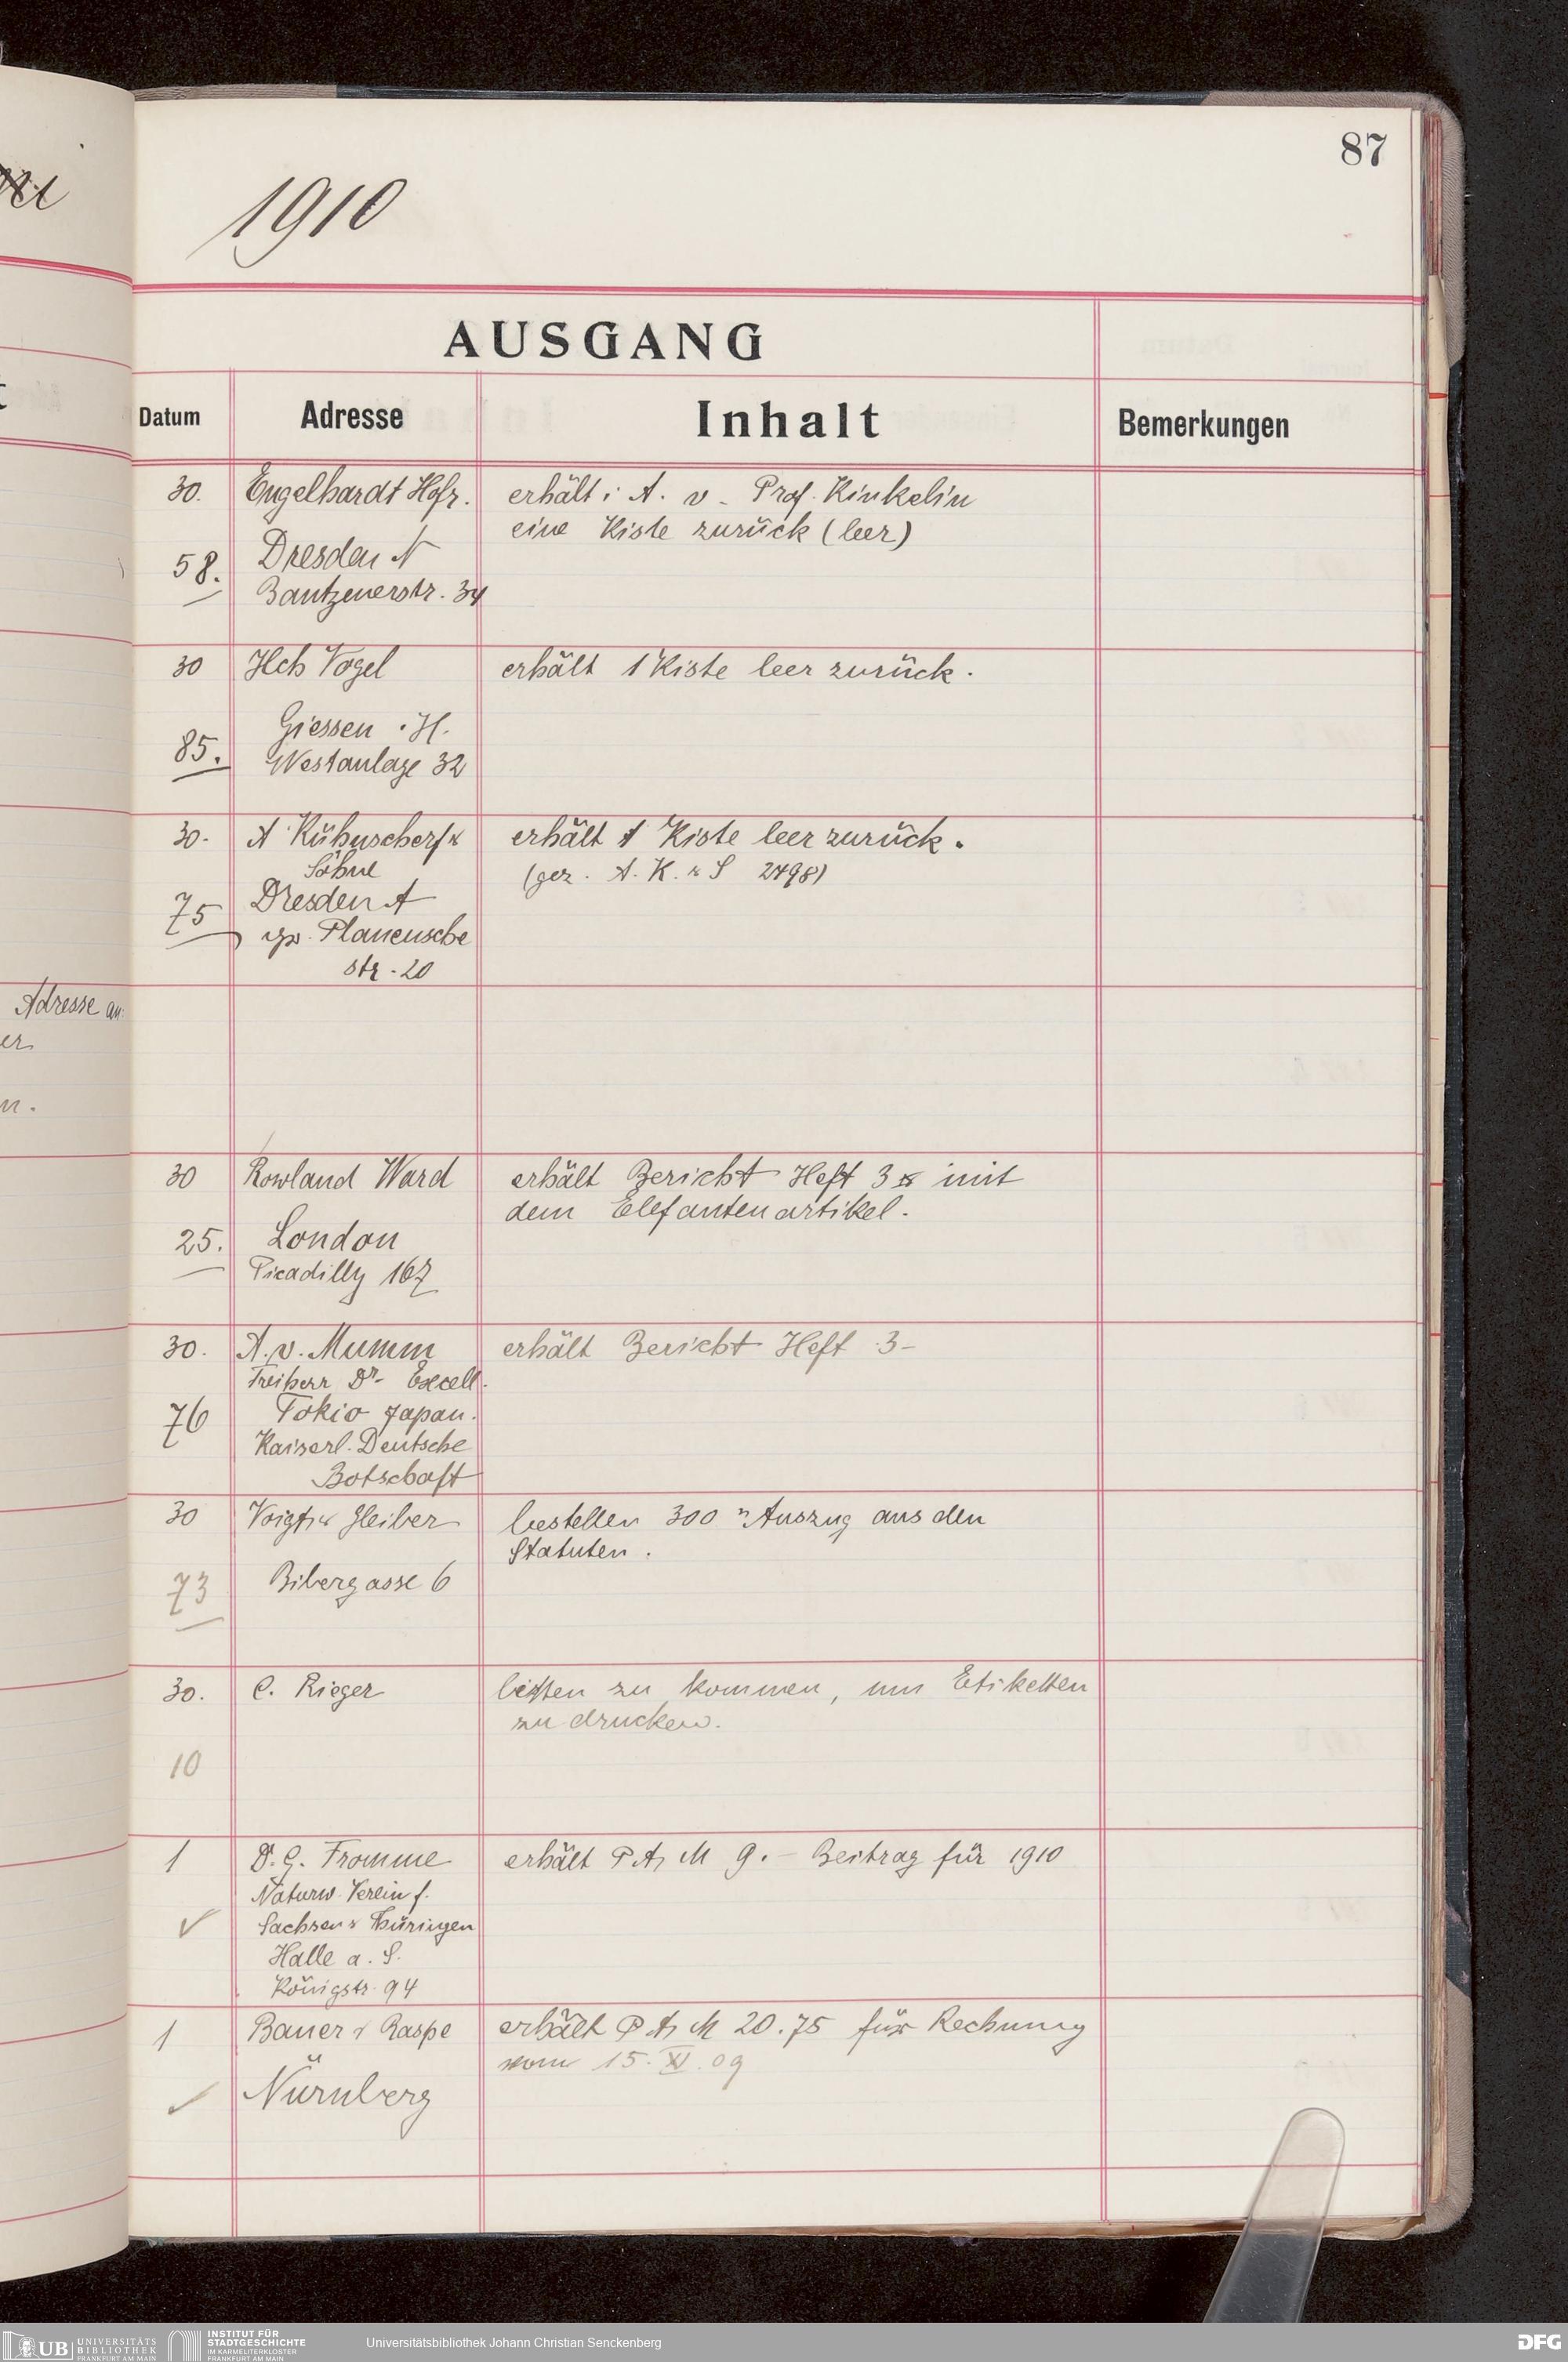 87
1910
AUSGANG
Datum Adresse Inhalt Bemerkungen
30. Engelhardt Hofr. erhält i. A. v. Prof. Kinkelin
eine Kiste zurück (leer)
58. Dresden N
Bautzenerstr. 34
30 Hch Vogel erhält 1 Kiste leer zurück.
Giessen i. H.
85. Westanlage 32
30. A Kühnscherf & erhält 1 Kiste leer zurück.
Söhne
(gez. A. K. & S 2498)
75 Dresden A
gr. Plauensche
str. 20
Adresse an
er
n.
30 Rowland Ward erhält Bericht Heft 3 mit
dem Elefantenartikel.
25. London
Picadilly 167
30. A. v. Mumm erhält Bericht Heft 3-
Freiherr Dr. Excell.
76 Tokio Japan.
Kaiserl. Deutsche
Botschaft
30 Voigt & Gleiber bestellen 300 Auszug aus den
Statuten.
73 Bibergasse 6
30. C. Rieger bitten zu kommen, um Etiketten
zu drucken.
10
1 D. G. Fromme erhält P. A. M 9.- Beitrag für 1910
Naturw. Verein f.
Sachsen & Thüringen
Halle a. S.
Königstr. 94
1 Bauer & Raspe erhält P. A. M 20.75 für Rechnung
vom 15. XI. 09
Nürnberg
UB UNIVERSITÄTS
BIBLIOTHEK
FRANKFURT AM MAIN
INSTITUT FÜR
STADTGESCHICHTE
IM KARMELITERKLOSTER
FRANKFURT AM MAIN
Universitätsbibliothek Johann Christian Senckenberg
DFG